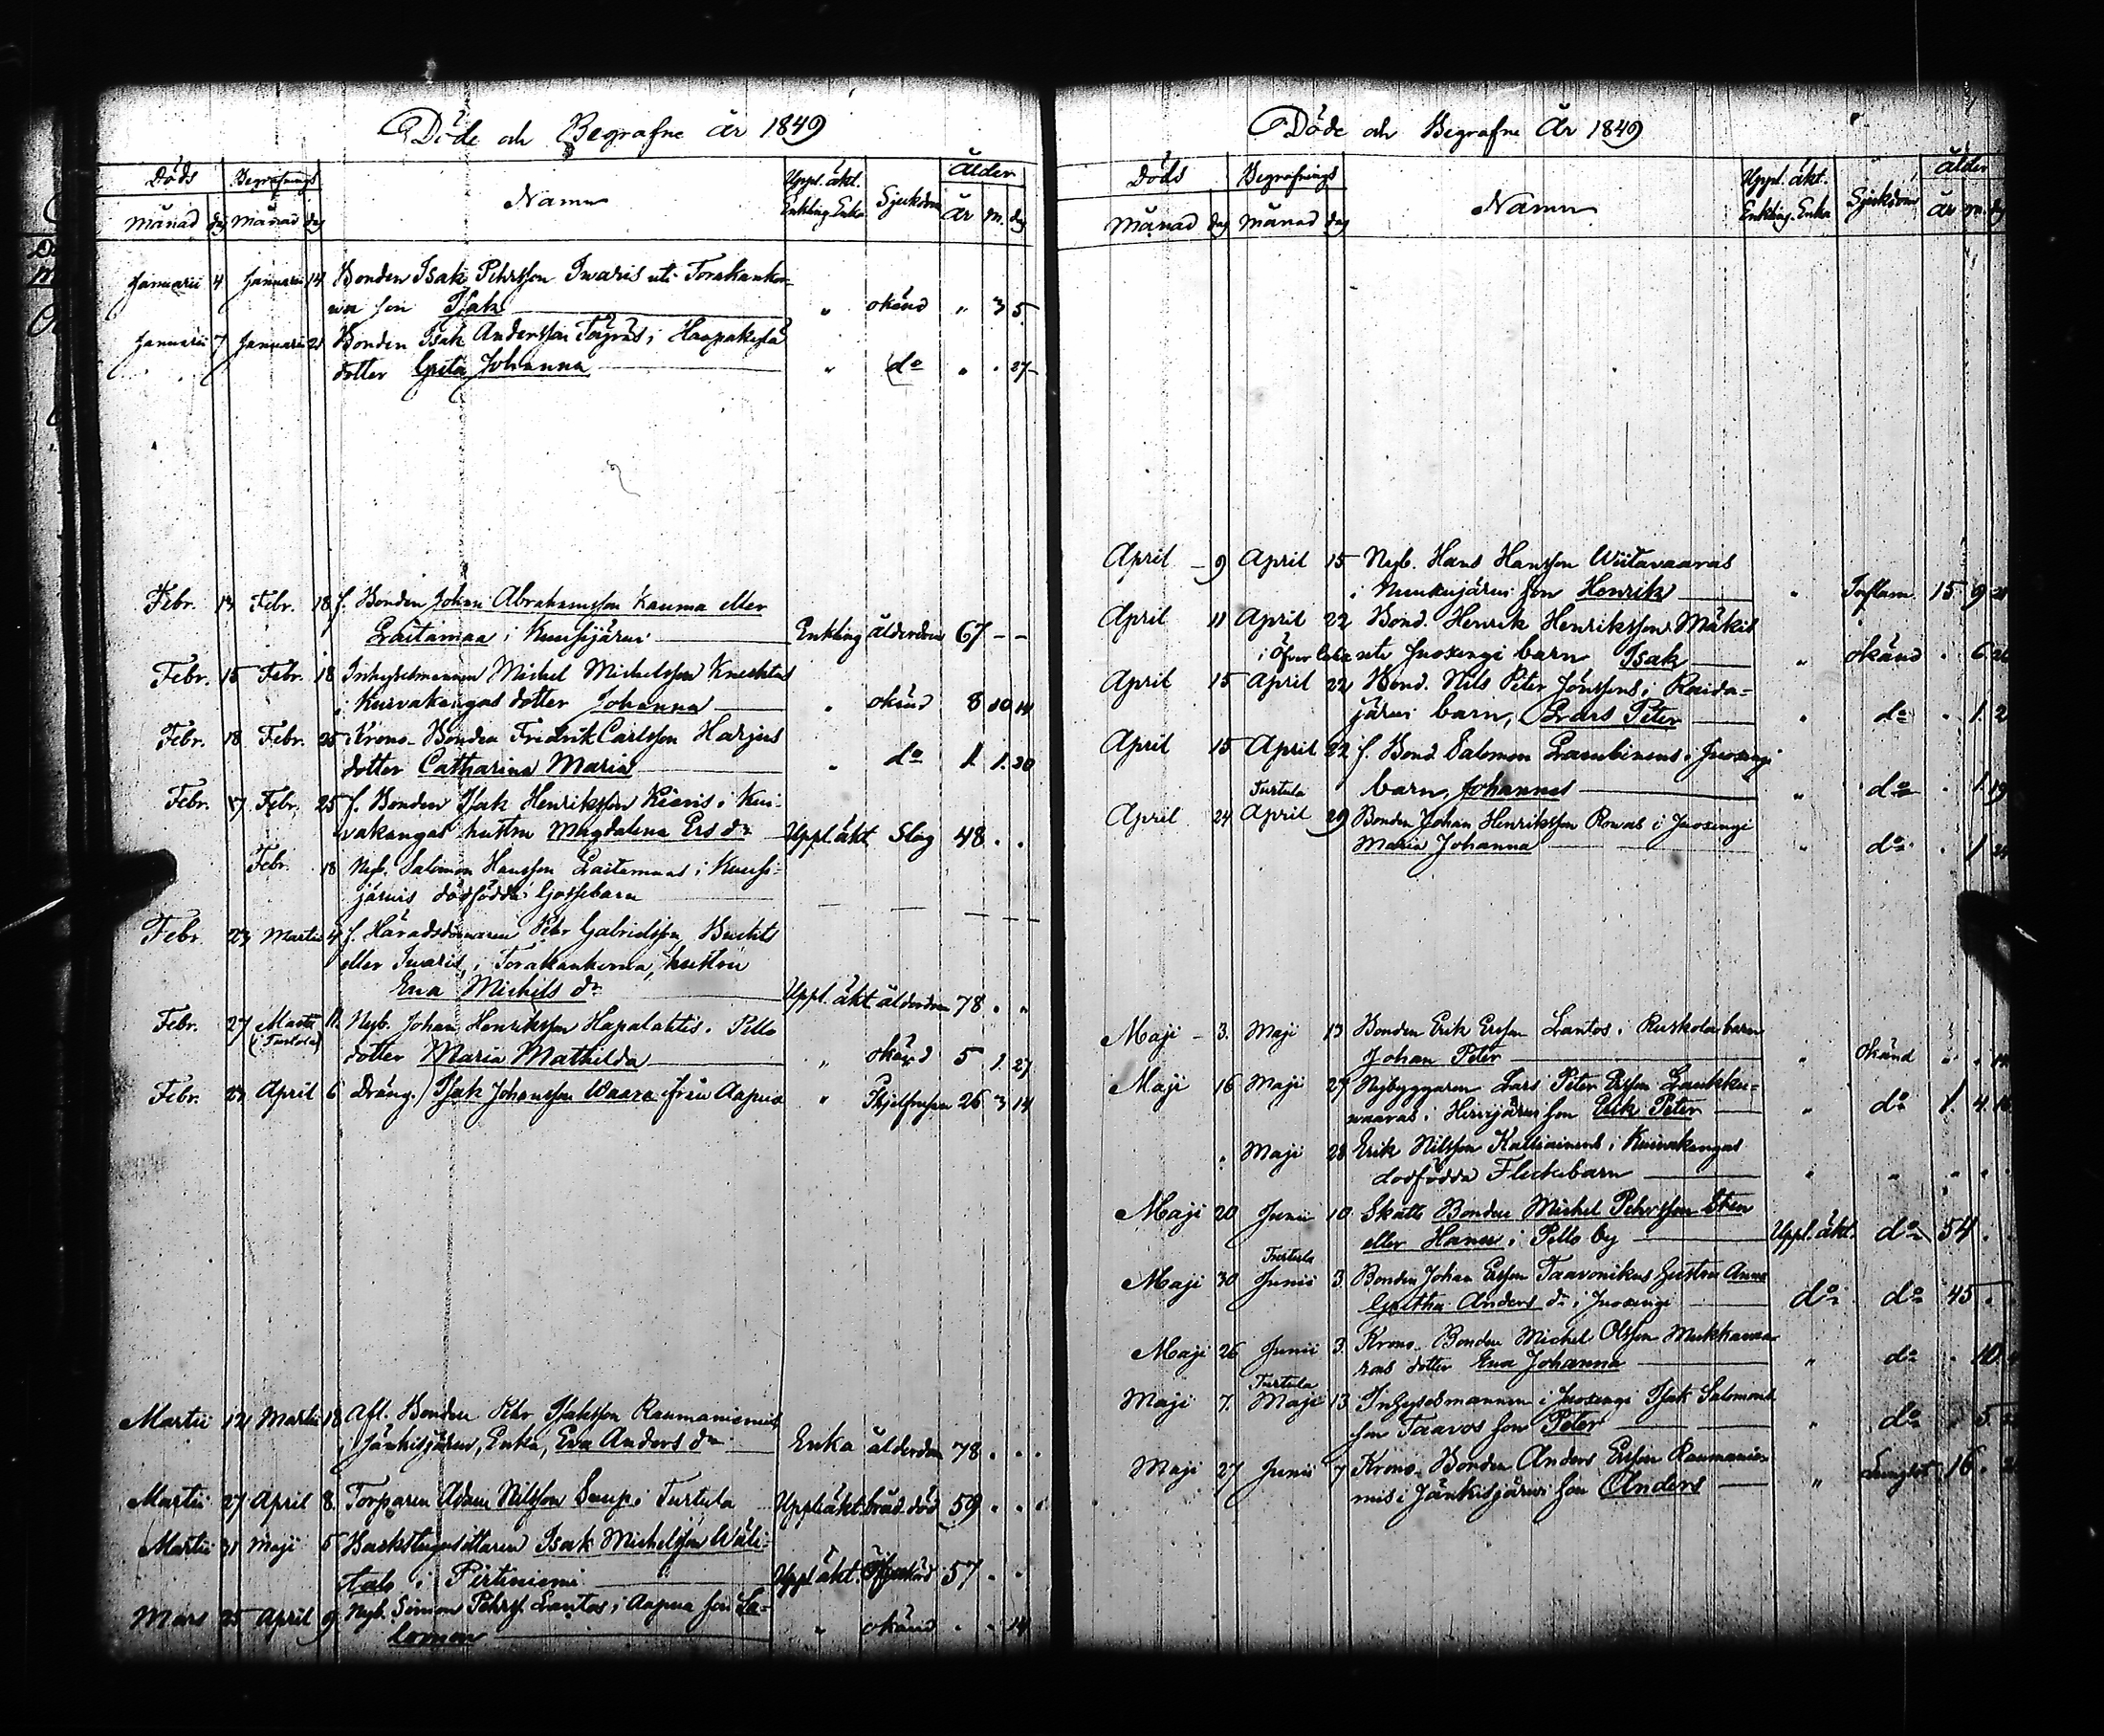 Döde och Begrafne År 1849
Döds Begrafnings Namn Uppl. äkt. Enkling Enka Sjukdom Ålder
Månad dag Månad dag År M. dag
Januarii 4 Januarii 14 Bonden Isak Pehrsson Iwaris uti Torakanko-
wa son Isak " okänd " 3 5
Januarii 7 Januarii 21 Bonden Isak Andersson i Haapakylä
dotter Greta Johanna " do " . 27
Febr. Febr. 18 f. Bonden Johan Abrahamsson Kauma eller
Laitamaa i Kuusijärvi Enkling ålderdom 67 – –
Febr. 15 Febr. 18 Inhysesmannen Michel Michelsson Knecktas
i Kuivakangas dotter Johanna " okänd 8 10 14
Febr. 18 Febr. 25 Krono-Bonden Fredrik Carlsson Harjus
dotter Catharina Maria " do 1. 1. 20
Febr. 17 Febr. 25 f. Bonden Isak Henriksson Kieris i Kui-
vakangas hustru Magdalena Ers dr Uppl. äkt Slag 48 . .
Febr. 18 Nyb. Salomon Hansson Laitamaas i Kuusi-
järvis dödfödda Gossebarn — — — —
Febr. 23 Martii 4 f. Häradsdomaren Pehr Gabrielsson Buckts
eller Iwaris, i Torakankorva, hustru
Eva Michels dr Uppl. äkt ålderdom 78 . "
Febr. 27 Martii 11. Nyb. Johan Henriksson Hapalahtis i Pello
(i Turtola)
dotter Maria Mathilda " okänd 5 1. 27
Febr. 27 April 6 Dräng. Isak Johansson Waara från Aapua " Ihjelfrusen 26 3 14
Martii 12 Martii 18 Afl. Bonden Pehr Isaksson Raumaniemis
i Jänkisjärvi, Enka, Eva Anders dr Enka ålderdom 78 . . .
Martii 27 April 8. Torparen Adam Nilsson i Turtula Uppl. äkt. bråd död 59 . .
Martii 31 Maji 5 Backstugusittaren Isak Michelsson Wäli-
talo i Pirttiniemi Uppl. äkt. 57 . .
Mars 25 April 9. Nyb. Simon Pehrs. Lantos i Aapua son Sa-
lomon " okänd . . 14
Döde och Begrafne År 1849
Döds Begrafnings Namn Uppl. äkt. Enkling. Enka Sjukdom ålder
Månad dag Månad dag år m. dag
April – 9 April 15 Nyb. Hans Hansson Wiitavaaras
i son Henrik " Inflam. 15 9
April 11 April 22 Bond. Henrik Henriksson Mäkis
i uti Juoxengi barn Isak " okänd . 6.
April 15 April 22 Bond. Nils Peter Jönssens i Raida-
järvi barn, Lars Peter " do . 1. 2
April 15 April 22 f. Bond Salomon Lambinens i Juoxengi
Turtula barn, Johannes " do . 1. 19
April 24 April 29 Bonden Johan Henriksson Rowas i Juoxengi
Maria Johanna " do . 1
Maji – 3. Maji 13 Bonden Erik Ersson Lantos i Ruskola barn
Johan Peter " okänd . .
Maji 16 Maji 27 Nybyggaren Lars Peter Ersson Laukku-
waaras i Hirvijärvi son Erik Peter " do 1. 4.
" Maji 28 Erik Nilsson Kassiainens i Kuivakangas
dödfödda Flickebarn " " " .
Maji 20 Junii 10 Skatte Bonden Michel Pehrsson Sten
eller Hanu i Pello by Uppl. äkt. do 54 .
Turtula
Maji 30 Junii 3. Bonden Johan Ersson Taavonikus hustru Anna
Greta Anders dr i Juoxengi do do 45 .
Maji 26 Junii 3. Krono-Bonden Michel Olsson Mukkavaa-
ras dotter Eva Johanna " do . 10.
Turtula
Maji 7. Maji 13 Inhysesmannen i Juoxengi Isak Salomons
son Taavos son Peter " do . 5.
Maji 27 Junii 7 Krono-Bonden Anders Ersson Raumanie-
mis i Jänkisjärvi son Anders " Lungsot 16 .